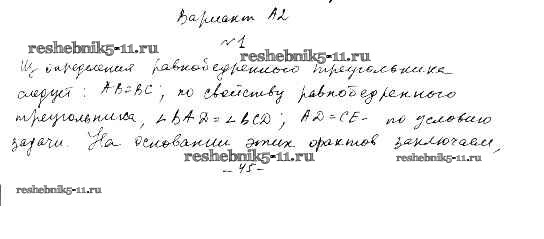 Вариант А2
№1
reshebnik5-11.ru
Из определения равнобедренного треугольника
следует: AB=BC; по свойству равнобедренного
треугольника, ∠BAD=∠BCD; AD=CE- по условию
задачи. На основании этих фактов заключаем,
reshebnik5-11.ru
reshebnik5-11.ru
- 45 -
reshebnik5-11.ru